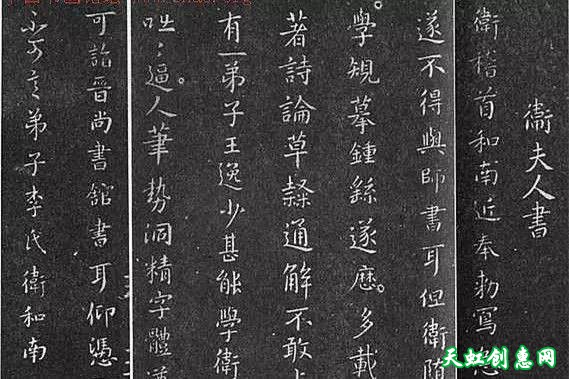 衛夫人書
衛稽首和南近奉勅寫急
遂不得與師書耳但衛隨
學規摹鍾繇遂歷多載
著詩論草隸通解不敢上
有一弟子王逸少甚能學衛
咄〻逼人筆勢洞精字體遒
可詣晉尚書館書耳仰憑
不可言弟子李氏衛和南
天虹创意网